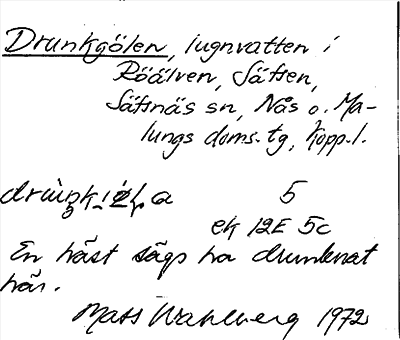 Drunkgölen, lugnvatten i
Röälven, Sätten,
Säfsnäs sn, Nås o. Ma-
lungs doms. tg, Kopp. l.
5
ek 12E 5c
En häst sägs ha drunknat
här.
Mats Wahlberg 1972